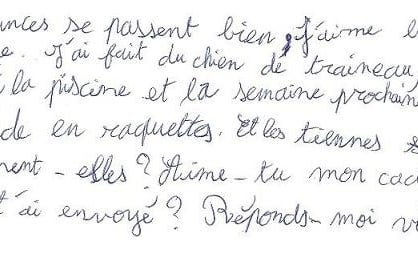 ances se passent bien, J'aime l
e. J'ai fait du chien de traineau
la piscine et la semaine prochain
de en raquettes. Et les tiennes s
ment-elles? Aime-tu mon cad
t'ai envoyé? Réponds-moi v